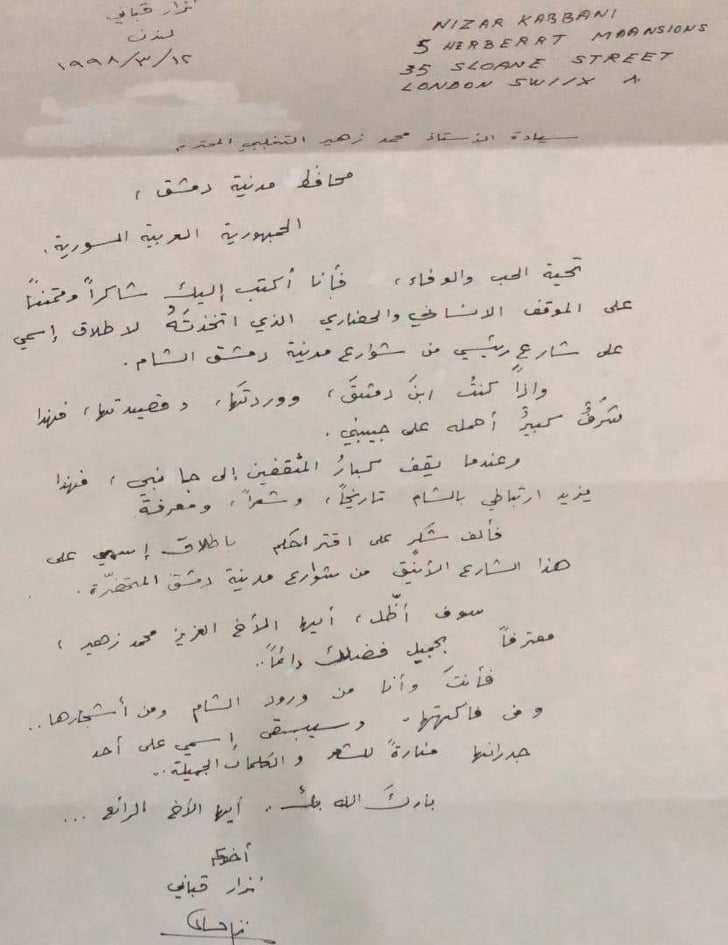 نزار قباني
لندن
١٩٩٨/٣/١٢
NIZAR KABBANI
5 HERBERRT MAANSIONS
35 SLOANE STREET
LONDON SW1X
سيادة الأستاذ محمد زهير التغلبي المحترم
محافظ مدينة دمشق،
الجمهورية العربية السورية.
تحية الحب والوفاء، فأنا أكتب إليك شاكراً وممتناً
على الموقف الانساني والحضاري الذي اتخذتَهُ لاطلاق إسمي
على شارع رئيسي من شوارع مدينة دمشق الشام.
واذا كنتُ ابنَ دمشقَ، ووردتَها، وقصيدتها، فهذا
شرفٌ كبيرٌ أحمله على جبيني.
وعندما يقف كبارُ المثقفين إلى جانبي، فهذا
يزيد ارتباطي بالشام تاريخاً، وشعراً، ومعرفةً
فألف شكر على اقتراحكم باطلاق إسمي على
هذا الشارع الأنيق من شوارع مدينة دمشق المتحضّرة.
سوف أظّل، أيها الأخ العزيز محمد زهير،
معترفاً بجميل فضلك دائماً..
فأنتَ وأنا من ورود الشام ومن أشجارها..
ومن فاكهتها. وسيبقى إسمي على أحد
جدرانها منارةً للشعر والكلمات الجميلة..
باركَ الله بك. أيها الأخ الرائع ...
أخوكم
نزار قباني